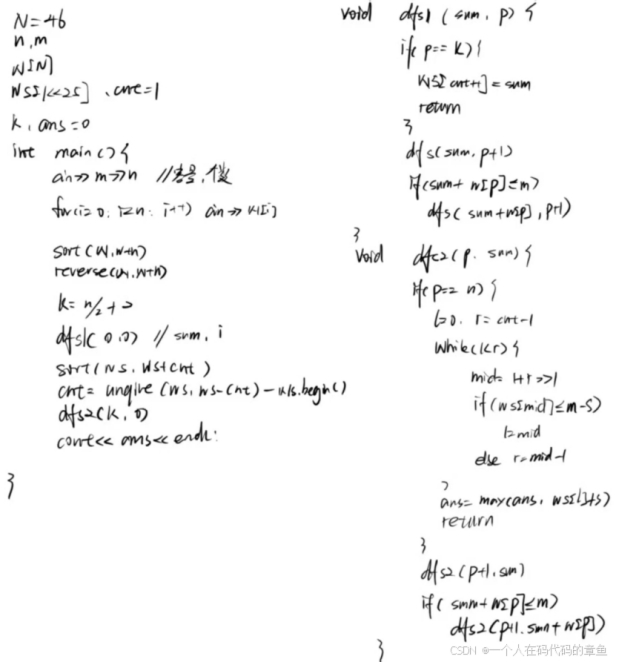 N=46
n,m
W[N]
WS[1<<25] , cnt=1
k, ans=0
int main(){
cin>>m>>n //
for(i=0; i<n; i++) cin>>W[i]
sort(W,W+n)
reverse(W,W+n)
k= n/2+2
dfs1(0,0) // sum, i
sort(WS, WS+cnt)
cnt= unqire(WS, WS-cnt)-WS.begin()
dfs2(k,0)
cout<<ans<<endl;
}
void dfs1 (sum, p) {
if( p==k){
WS[cnt++]=sum
return
}
dfs(sum, p+1)
if(sum+W[p]≤m)
dfs( sum+W[p], p+1)
}
void dfs2 (p, sum) {
if(p==n) {
l=0, r=cnt-1
while(l<r){
mid= l+r>>1
if(WS[mid]≤m-s)
l=mid
else r=mid-1
}
ans= max(ans, WS[l]+s)
return
}
dfs2(p+1,sum)
if( sum+W[p]≤m)
dfs2(p+1,sum+W[p])
}
CSDN @一个人在码代码的章鱼